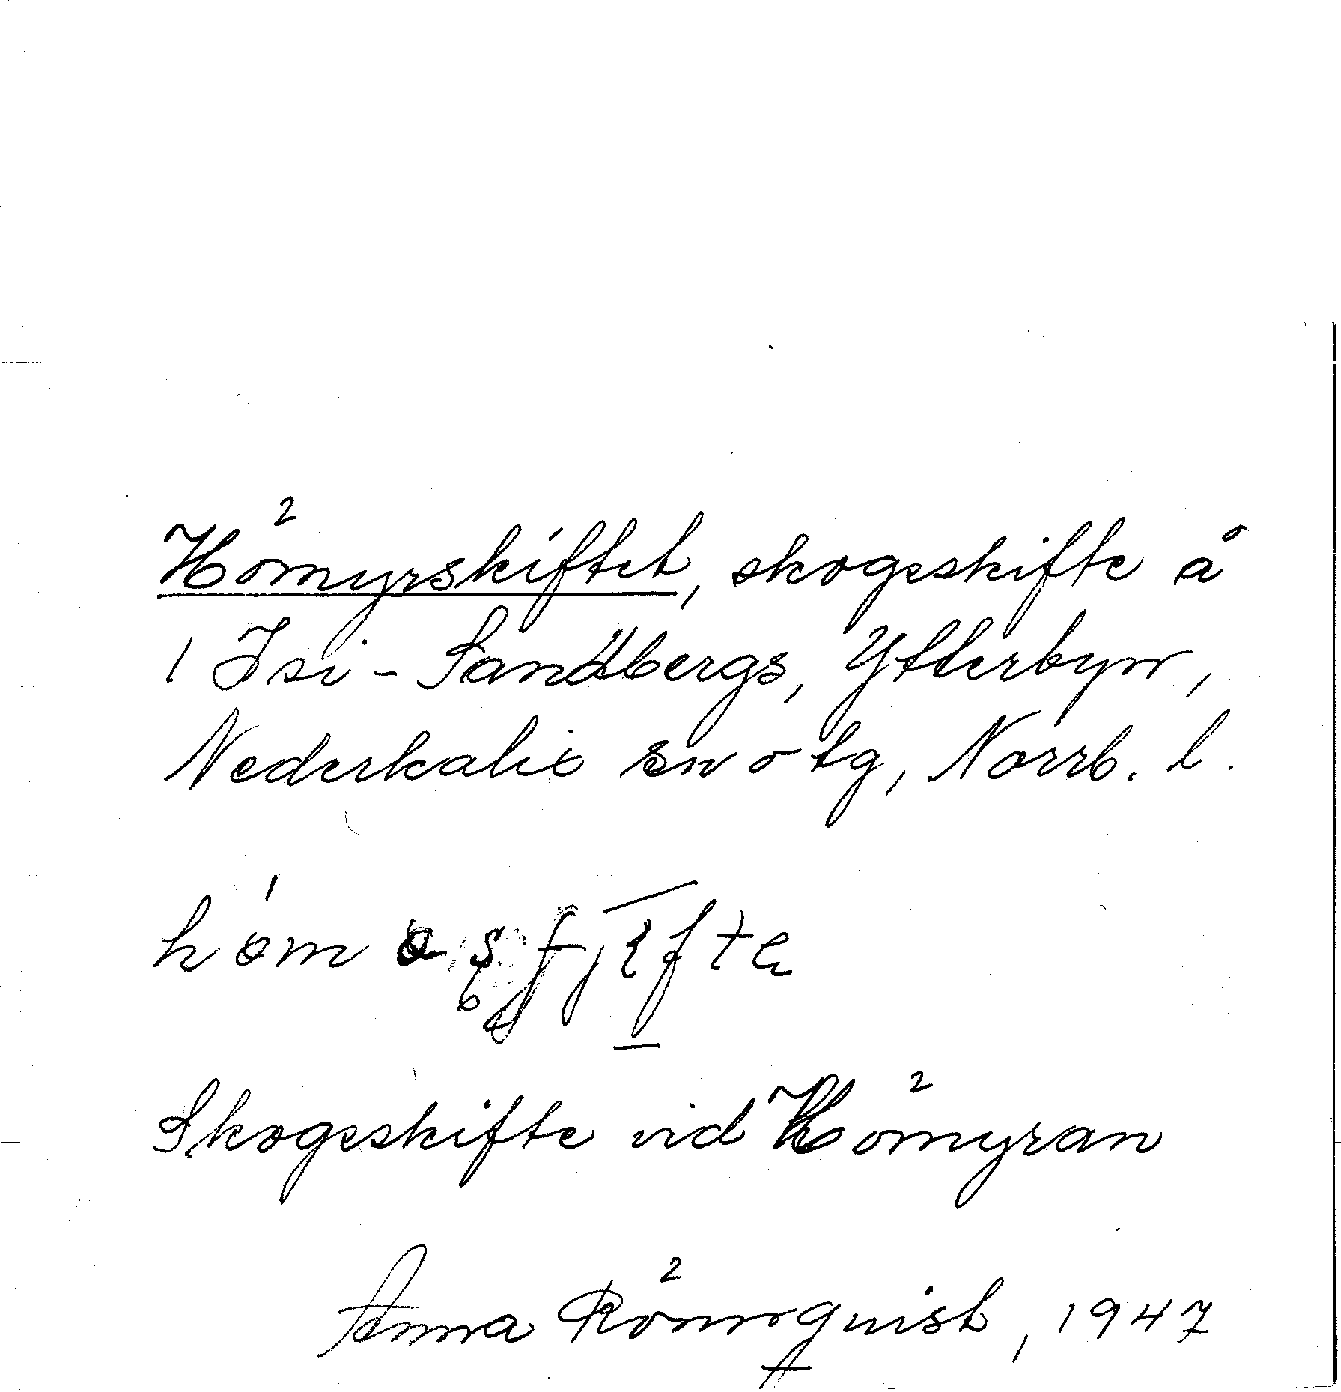 Hömyrskiftet, skogsskifte å
1 Isi-Sandbergs, Ytterbyn,
Nederkalix sn o tg, Norrb. l.
Skogsskifte vid Hömyran
Anna Rönnquist, 1947